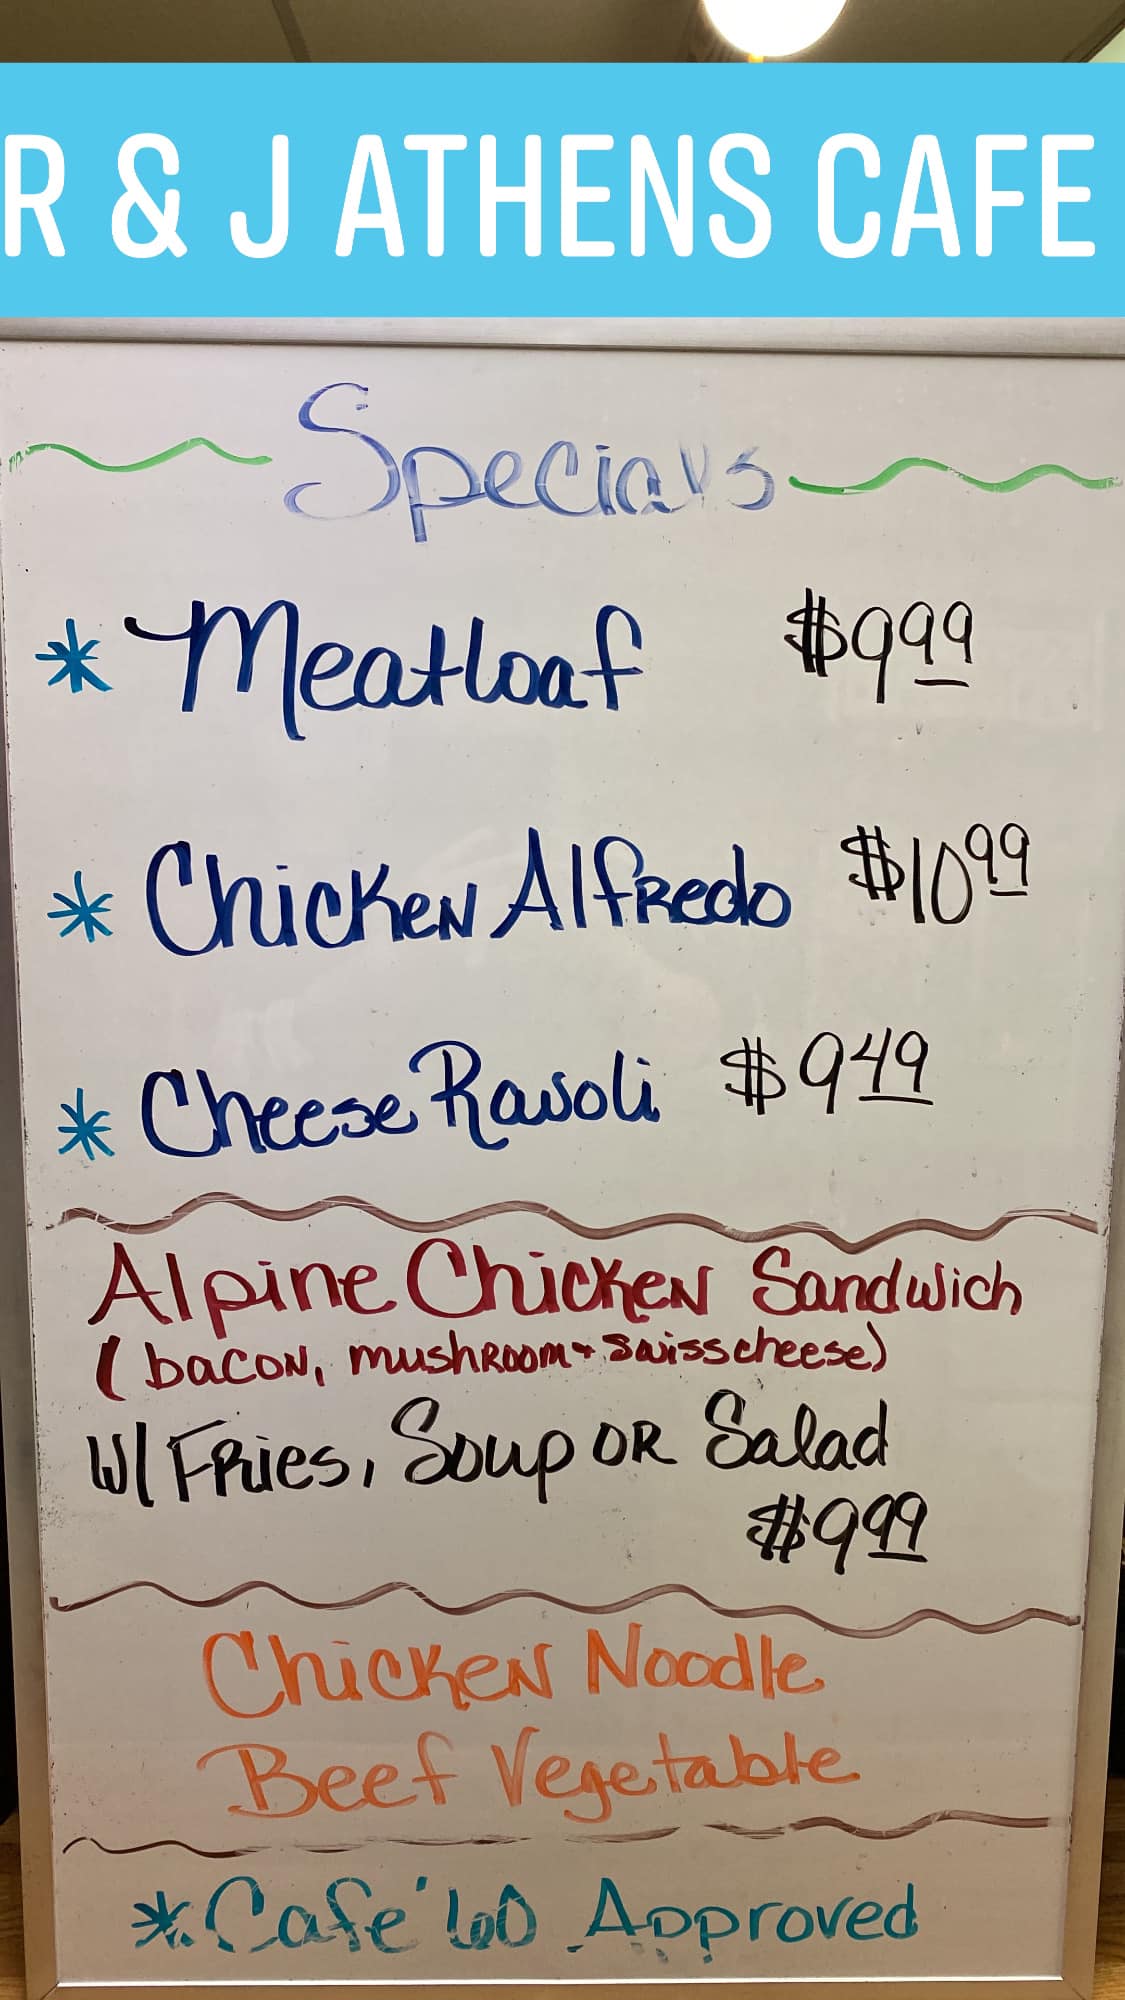 R & J ATHENS CAFE
Specials
* Meatloaf $9.99
* Chicken Alfredo $10.99
* Cheese Ravoli $9.49
Alpine Chicken Sandwich
(bacon, mushroom + swiss cheese)
w/ Fries, Soup or Salad
$9.99
Chicken Noodle
Beef Vegetable
* Cafe' 60 Approved